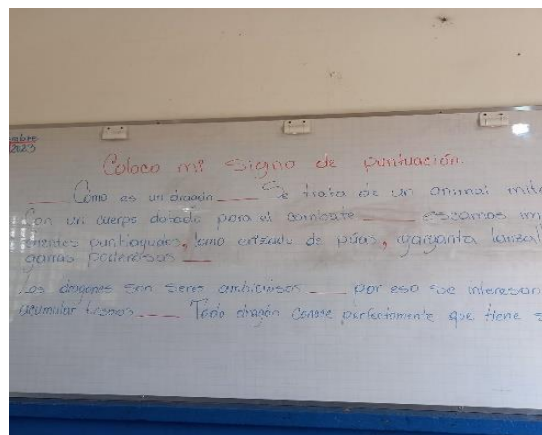 mbre
2023
Coloco mi signo de puntuación.
____ Cómo es un dragón ____ Se trata de un animal
Con un cuerpo dotado para el combate ____ escamas
puntiagudos, lomo de púas, garganta
garras poderosas ____
Los dragones son seres ambiciosos ____ por eso se interesan
acumular tesoros ____ Todo dragón conoce perfectamente que tiene